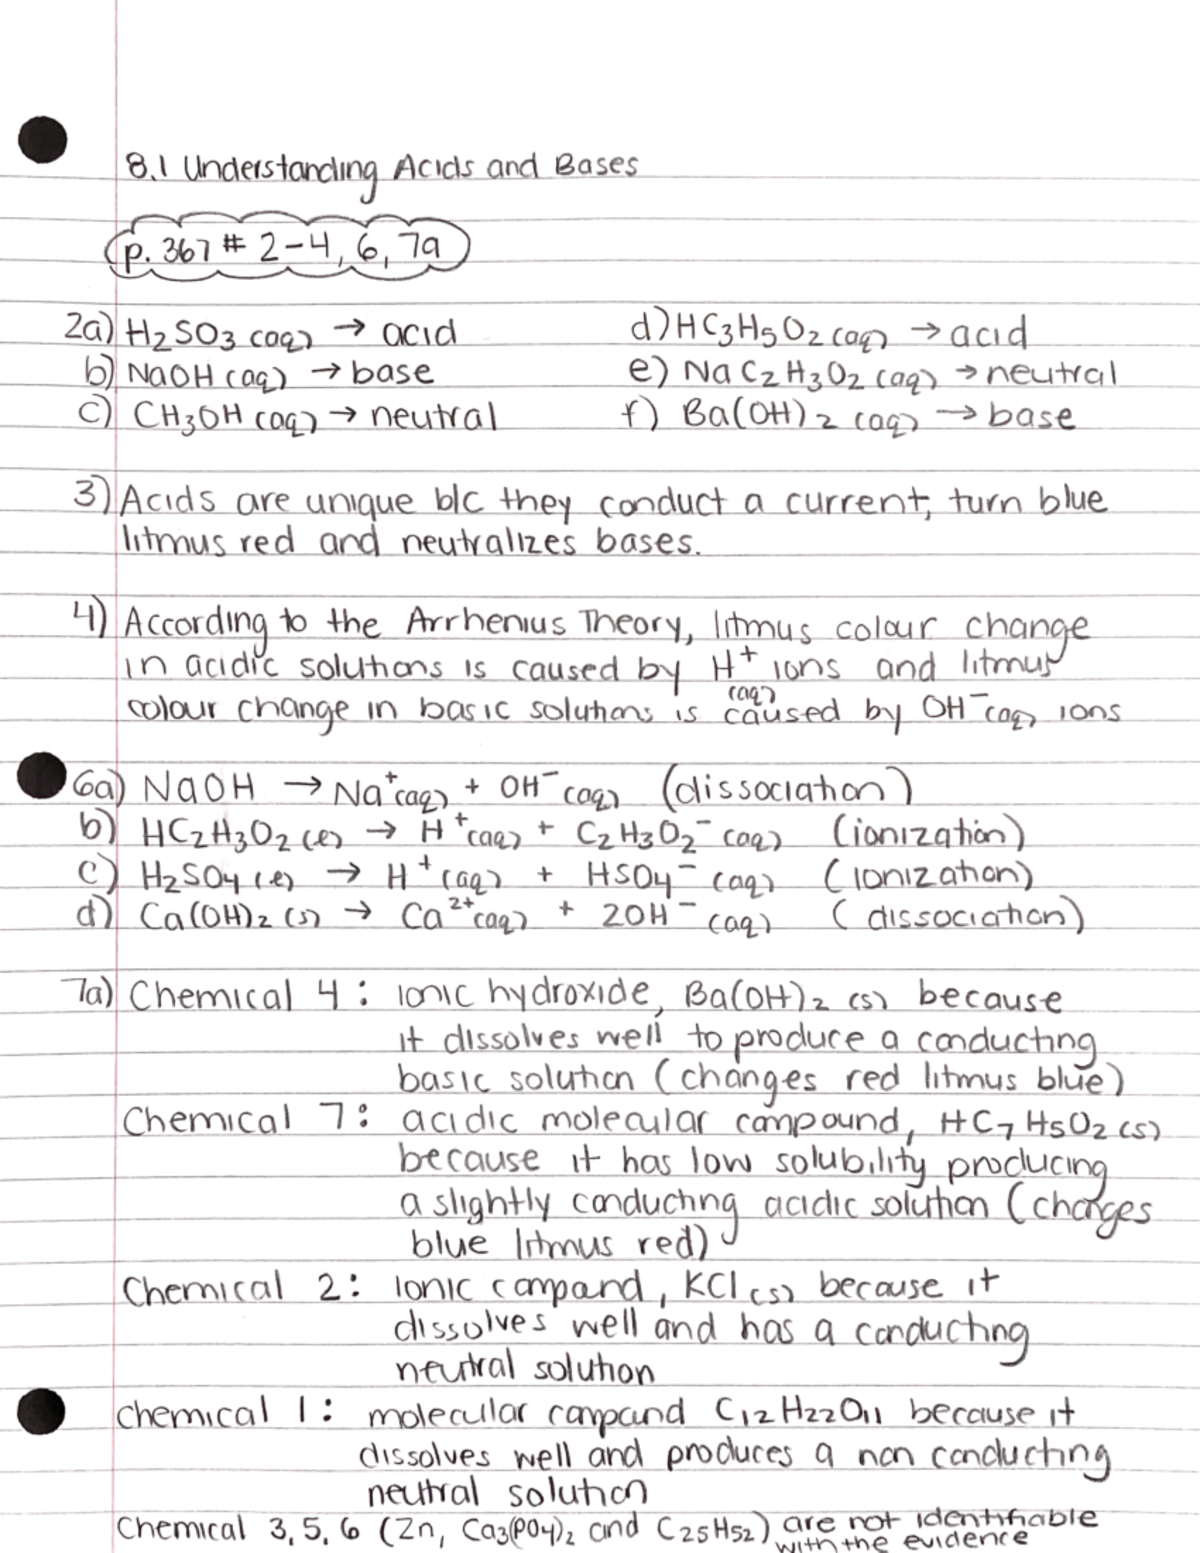 8.1 Understanding Acids and Bases
p. 367 # 2-4, 6, 7a
2a) H2SO3 (aq) → acid
b) NaOH (aq) → base
c) CH3OH (aq) → neutral
d) HC3H5O2 (aq) → acid
e) NaC2H3O2 (aq) → neutral
f) Ba(OH)2 (aq) → base
3) Acids are unique b/c they conduct a current, turn blue
litmus red and neutralizes bases.
4) According to the Arrhenius Theory, litmus colour change
in acidic solutions is caused by H+(aq) ions and litmus
colour change in basic solutions is caused by OH-(aq) ions
6a) NaOH → Na+(aq) + OH-(aq) (dissociation)
b) HC2H3O2 (l) → H+(aq) + C2H3O2-(aq) (ionization)
c) H2SO4 (l) → H+(aq) + HSO4-(aq) (ionization)
d) Ca(OH)2 (s) → Ca2+(aq) + 2OH-(aq) (dissociation)
7a) Chemical 4: ionic hydroxide, Ba(OH)2 (s) because
it dissolves well to produce a conducting
basic solution (changes red litmus blue)
Chemical 7: acidic molecular compound, HC7H5O2 (s)
because it has low solubility producing
a slightly conducting acidic solution (changes
blue litmus red)
Chemical 2: ionic compand, KCl (s) because it
dissolves well and has a conducting
neutral solution
Chemical 1: molecular compand C12H22O11 because it
dissolves well and produces a non conducting
neutral solution
Chemical 3, 5, 6 (Zn, Ca3(PO4)2 and C25H52) are not identifiable
with the evidence